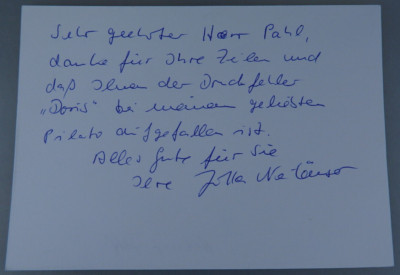 Sehr geehrter Herr Pahl,
danke für Ihre Zeilen und
daß Ihnen der Druckfehler
„Doris“ bei meinem geliebten
Pilato aufgefallen ist.
Alles Gute für Sie
Ihre Jutta